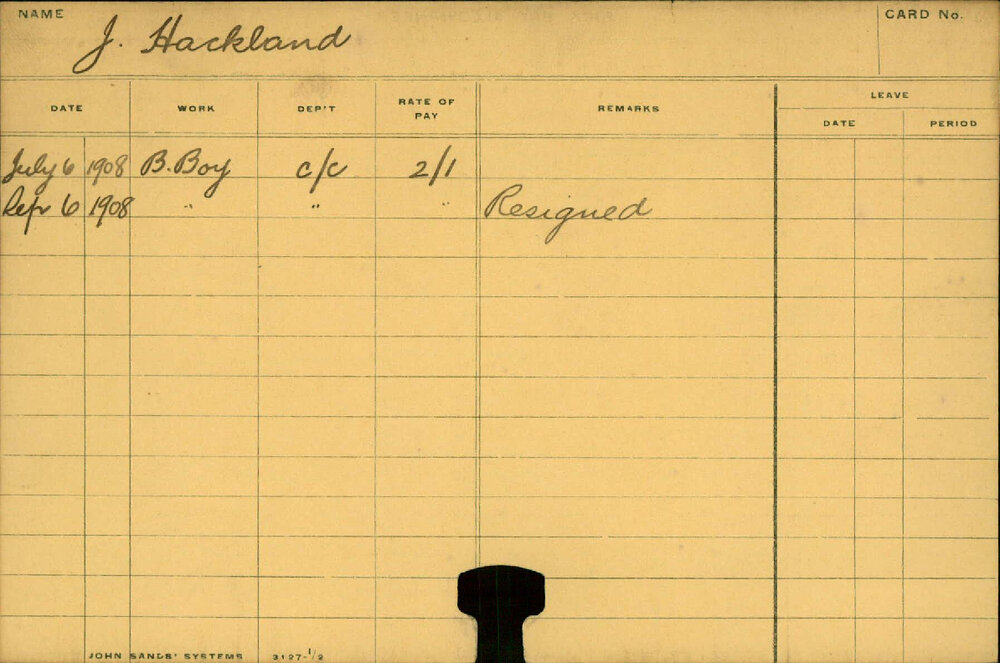 NAME CARD No.
J. Hackland
DATE WORK DEP'T RATE OF PAY REMARKS LEAVE
DATE PERIOD
July 6 1908 B. Boy c/c 2/1
Sep 6 1908 " " " Resigned
JOHN SANDS' SYSTEMS 3127-1/2